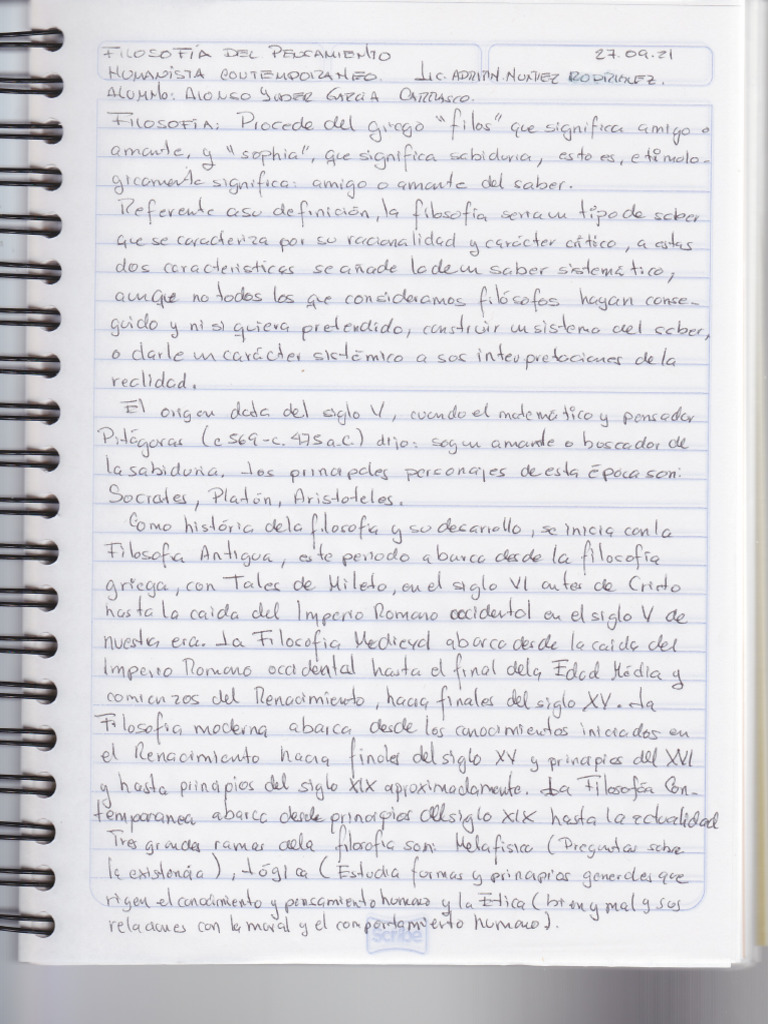 FILOSOFÍA DEL PENSAMIENTO 27.09.21
HUMANISTA CONTEMPORANEO. Lic. ADRIÁN NUÑEZ RODRIGUEZ.
ALUMNO: ALONSO YADER GARCIA CARRASCO.
FILOSOFÍA: Procede del griego "filos" que significa amigo o
amante, y "sophia", que significa sabiduria, esto es, etimolo-
gicamente significa: amigo o amante del saber.
Referente a su definición, la filosofía seria un tipo de saber
que se caracteriza por su racionalidad y carácter crítico, a estas
dos caracteristicas se añade la de un saber sistemático,
aunque no todos los que consideramos filósofos hayan conse-
guido y ni si quiera pretendido, construir un sistema del saber,
o darle un carácter sistémico a sus interpretaciones de la
realidad.
El origen data del siglo V, cuando el matemático y pensador
Pitágoras (c 569-c. 475 a.C.) dijo: según amante o buscador de
la sabiduria. Los principales personajes de esta época son:
Socrates, Platón, Aristoteles.
Como história de la filosofía y su desarrollo, se inicia con la
Filosofia Antigua, este periodo abarca desde la filosofía
griega, con Tales de Mileto, en el siglo VI antes de Cristo
hasta la caida del Imperio Romano occidental en el siglo V de
nuestra era. La Filosofia Medieval abarca desde la caida del
Imperio Romano occidental hasta el final de la Edad Média y
comienzos del Renacimiento, hacia finales del siglo XV. La
Filosofia moderna abarca desde los conocimientos iniciados en
el Renacimiento hacia finales del siglo XV y principios del XVI
y hasta principios del siglo XIX aproximadamente. La Filosofía Con-
temporanea abarca desde principios del siglo XIX hasta la actualidad
Tres grandes ramas de la filosofia son: Metafisica (Preguntas sobre
la existencia), Lógica (Estudia formas y principios generales que
rigen el conocimiento y pensamiento humano y la Etica (bien y mal y sus
relaciones con la moral y el comportamiento humano).
scribe